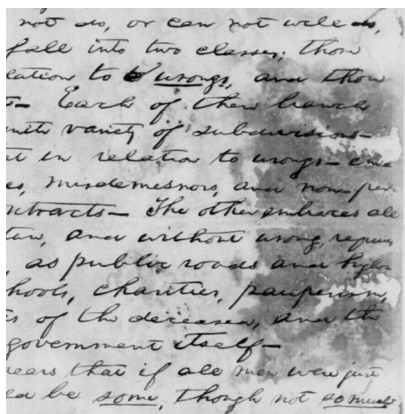 not do, or can not well do,
fall into two classes; those
lation to wrongs, and those
Each of these branch
nite variety of subdivisions—
in relation to wrongs—
es, misdemeanors, and non-per
ntracts— The other embraces all
ture, and without wrong, requires
, as public roads and high-
hools, charities, pauperism,
of the deceased, and the
government itself—
ears that if all men were just
ed be some, though not so much